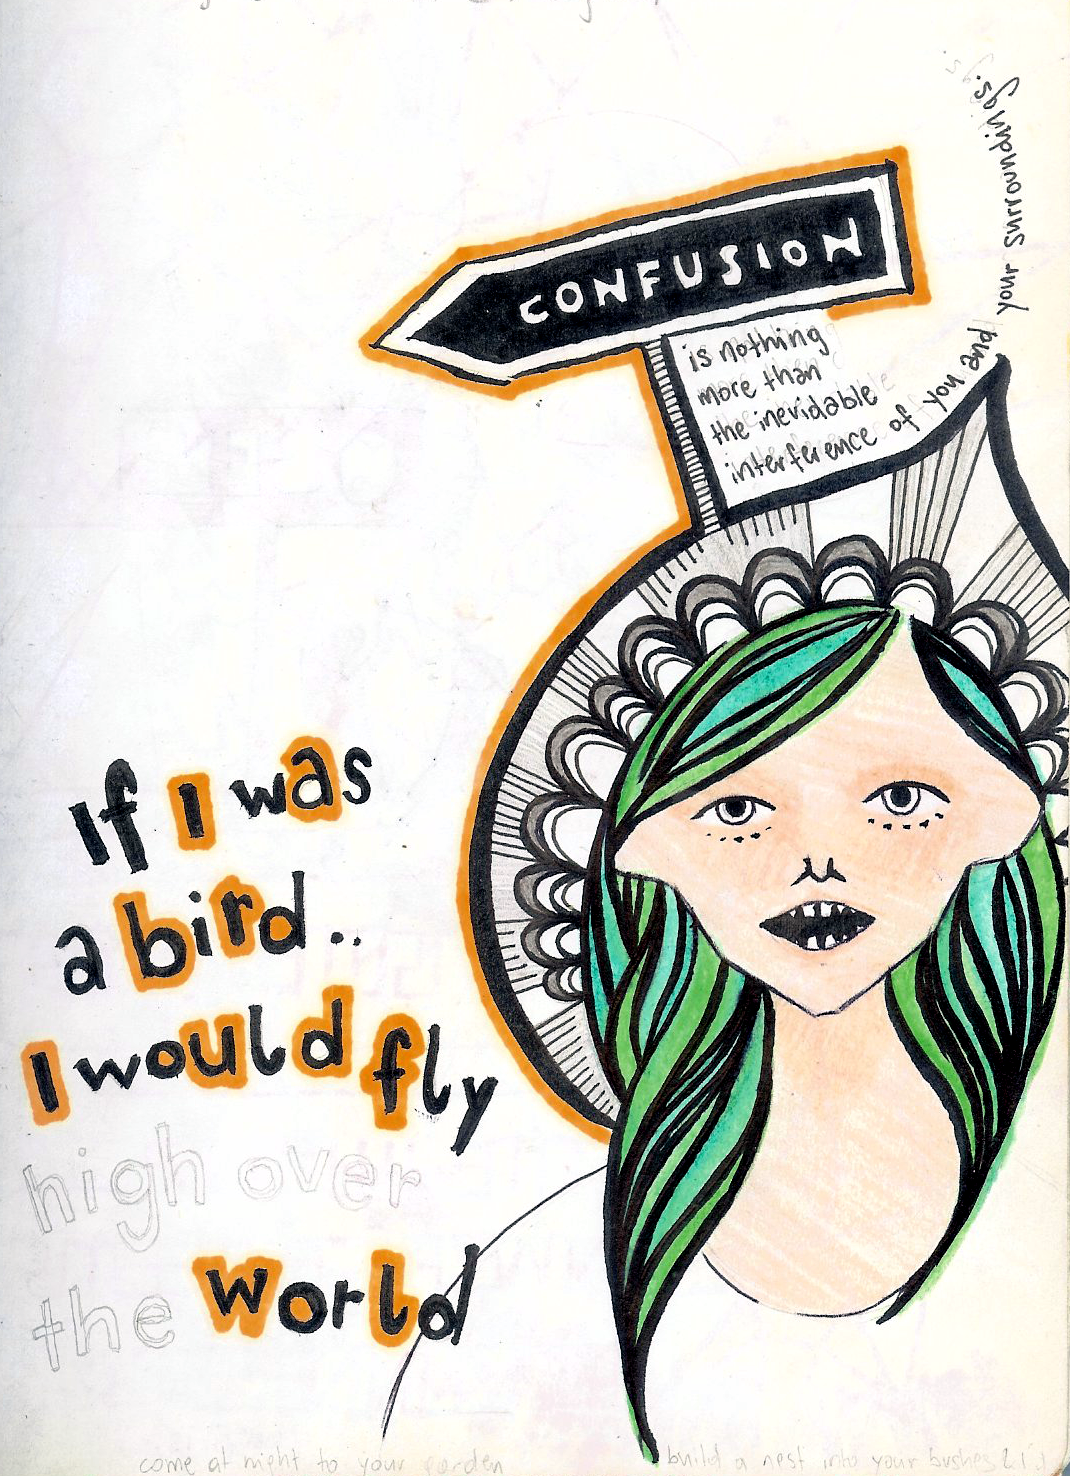 CONFUSION
is nothing
more than
the inevidable
interference of you and your surroundings.
If I was
a bird..
I would fly
high over
the world
come at night to your garden
build a nest into your bushes & I'd